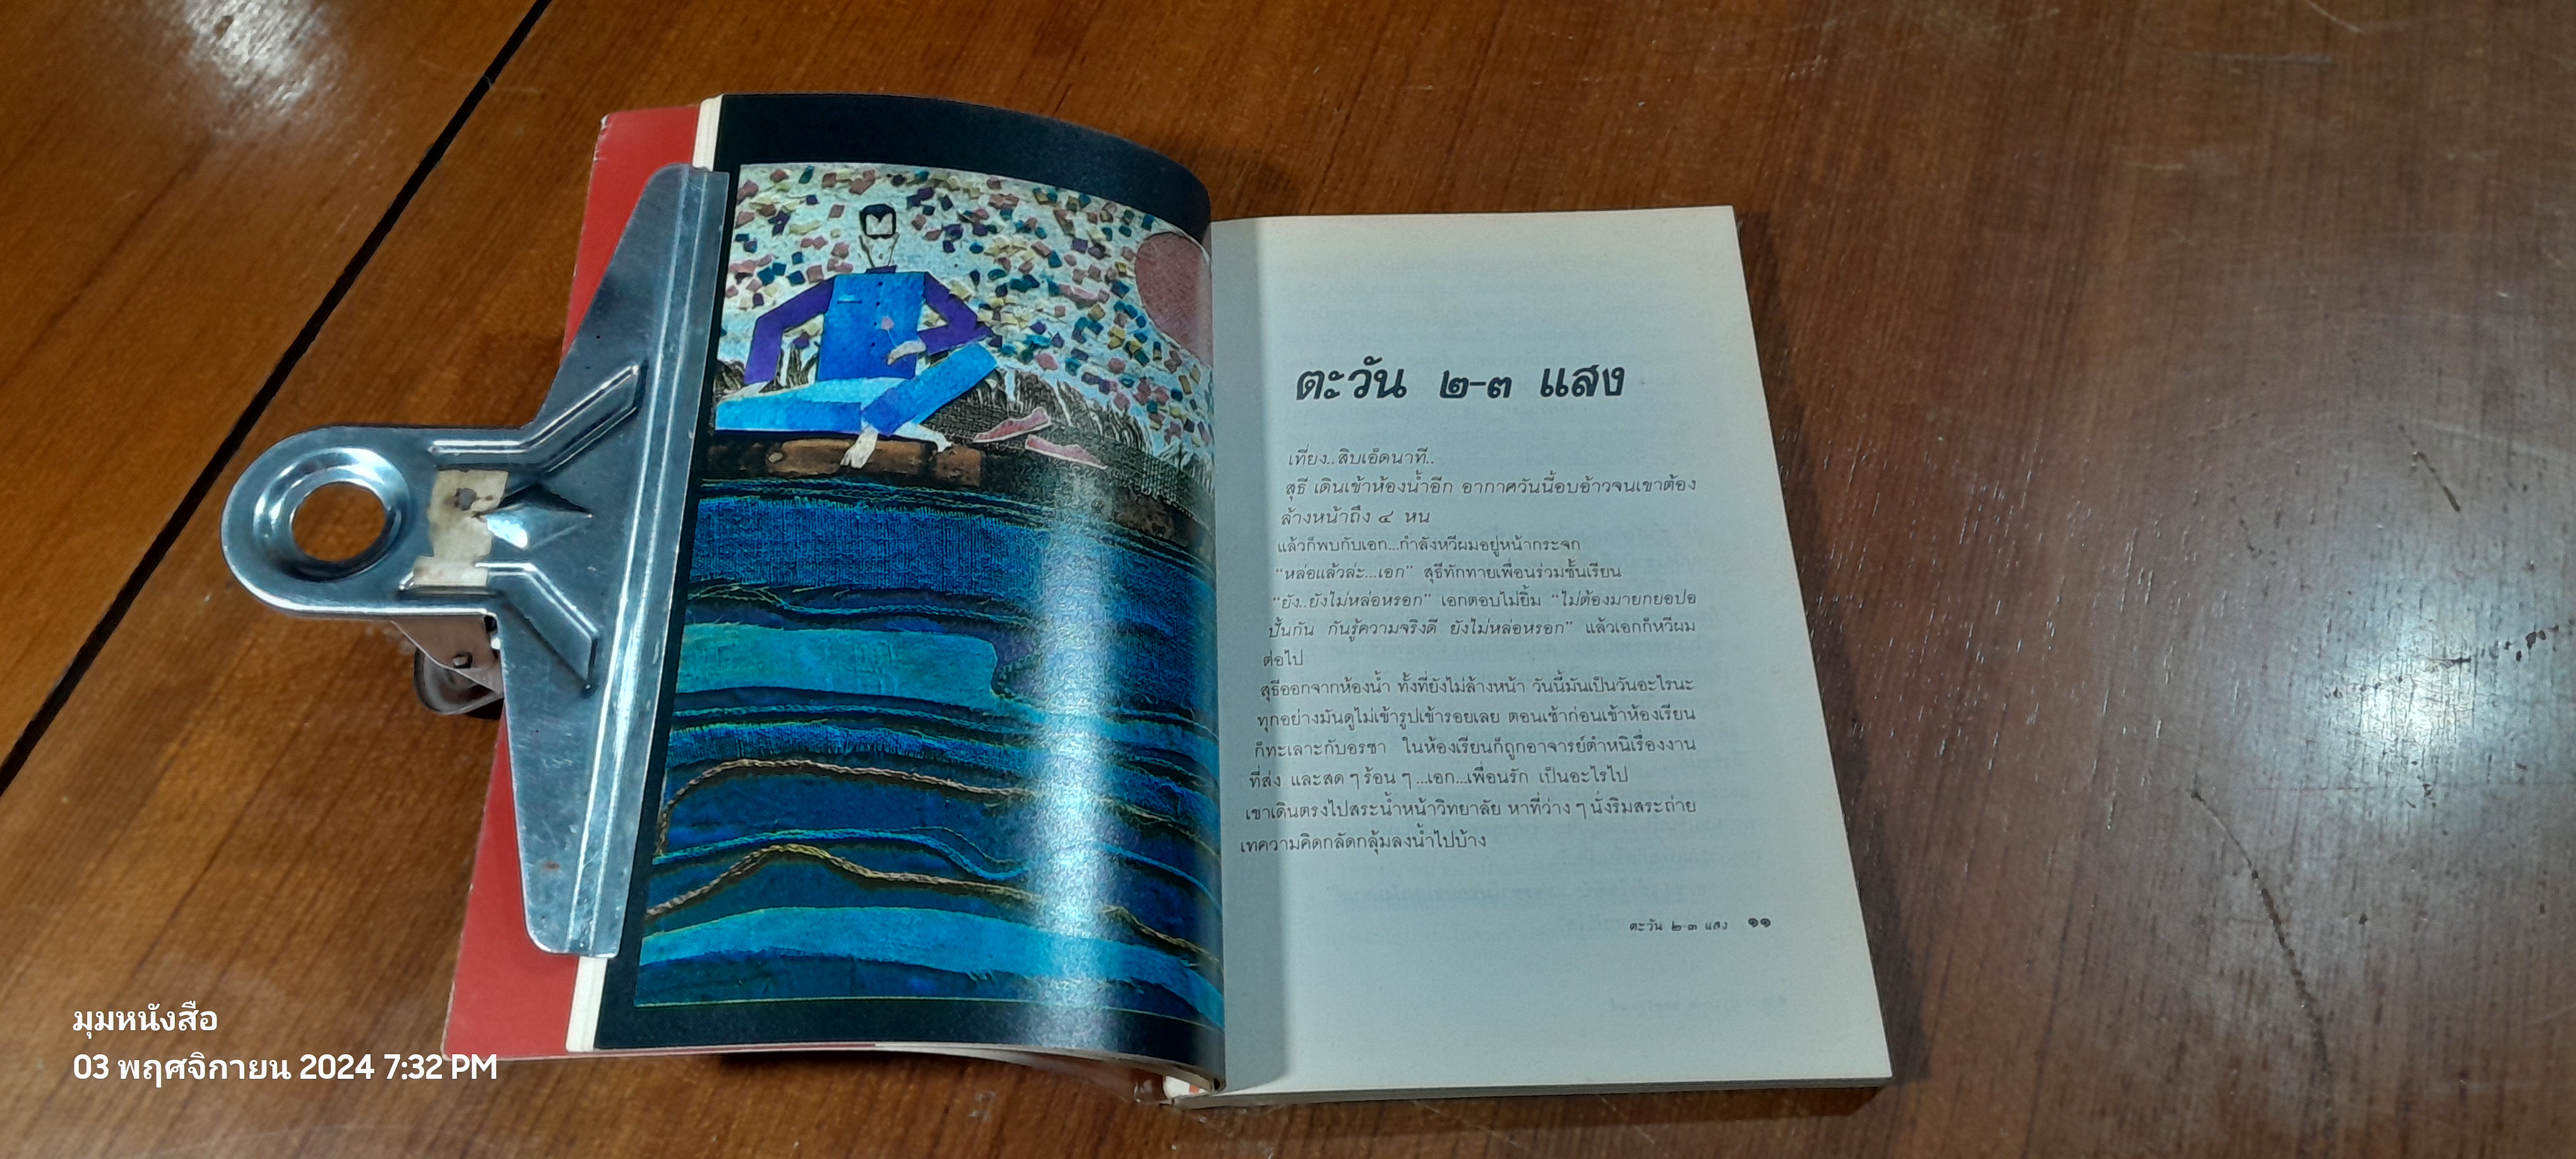 ตะวัน ๒-๓ แสง
เที่ยง..สิบเอ็ดนาที..
สุธี เดินเข้าห้องน้ำอีก อากาศวันนี้อบอ้าวจนเขาต้อง
ล้างหน้าถึง ๔ หน
แล้วก็พบกับเอก...กำลังหวีผมอยู่หน้ากระจก
“หล่อแล้วล่ะ...เอก” สุธีทักทายเพื่อนร่วมชั้นเรียน
“ยัง..ยังไม่หล่อหรอก” เอกตอบไม่ยิ้ม “ไม่ต้องมายกยอปอ
ปั้นกัน กันรู้ความจริงดี ยังไม่หล่อหรอก” แล้วเอกก็หวีผม
ต่อไป
สุธีออกจากห้องน้ำ ทั้งที่ยังไม่ล้างหน้า วันนี้มันเป็นวันอะไรนะ
ทุกอย่างมันดูไม่เข้ารูปเข้ารอยเลย ตอนเช้าก่อนเข้าห้องเรียน
ก็ทะเลาะกับอรชา ในห้องเรียนก็ถูกอาจารย์ตำหนิเรื่องงาน
ที่ส่ง และสด ๆ ร้อน ๆ ...เอก...เพื่อนรัก เป็นอะไรไป
เขาเดินตรงไปสระน้ำหน้าวิทยาลัย หาที่ว่าง ๆ นั่งริมสระถ่าย
เทความคิดกลัดกลุ้มลงน้ำไปบ้าง
ตะวัน ๒-๓ แสง ๑๑
มุมหนังสือ
03 พฤศจิกายน 2024 7:32 PM